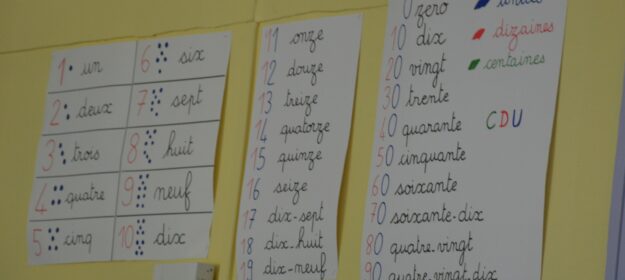 1 un
2 deux
3 trois
4 quatre
5 cinq
6 six
7 sept
8 huit
9 neuf
10 dix
11 onze
12 douze
13 treize
14 quatorze
15 quinze
16 seize
17 dix-sept
18 dix-huit
19 dix-neuf
0 zero
10 dix
20 vingt
30 trente
40 quarante
50 cinquante
60 soixante
70 soixante-dix
80 quatre-vingt
90 quatre-vingt-dix
unités
dizaines
centaines
CDU